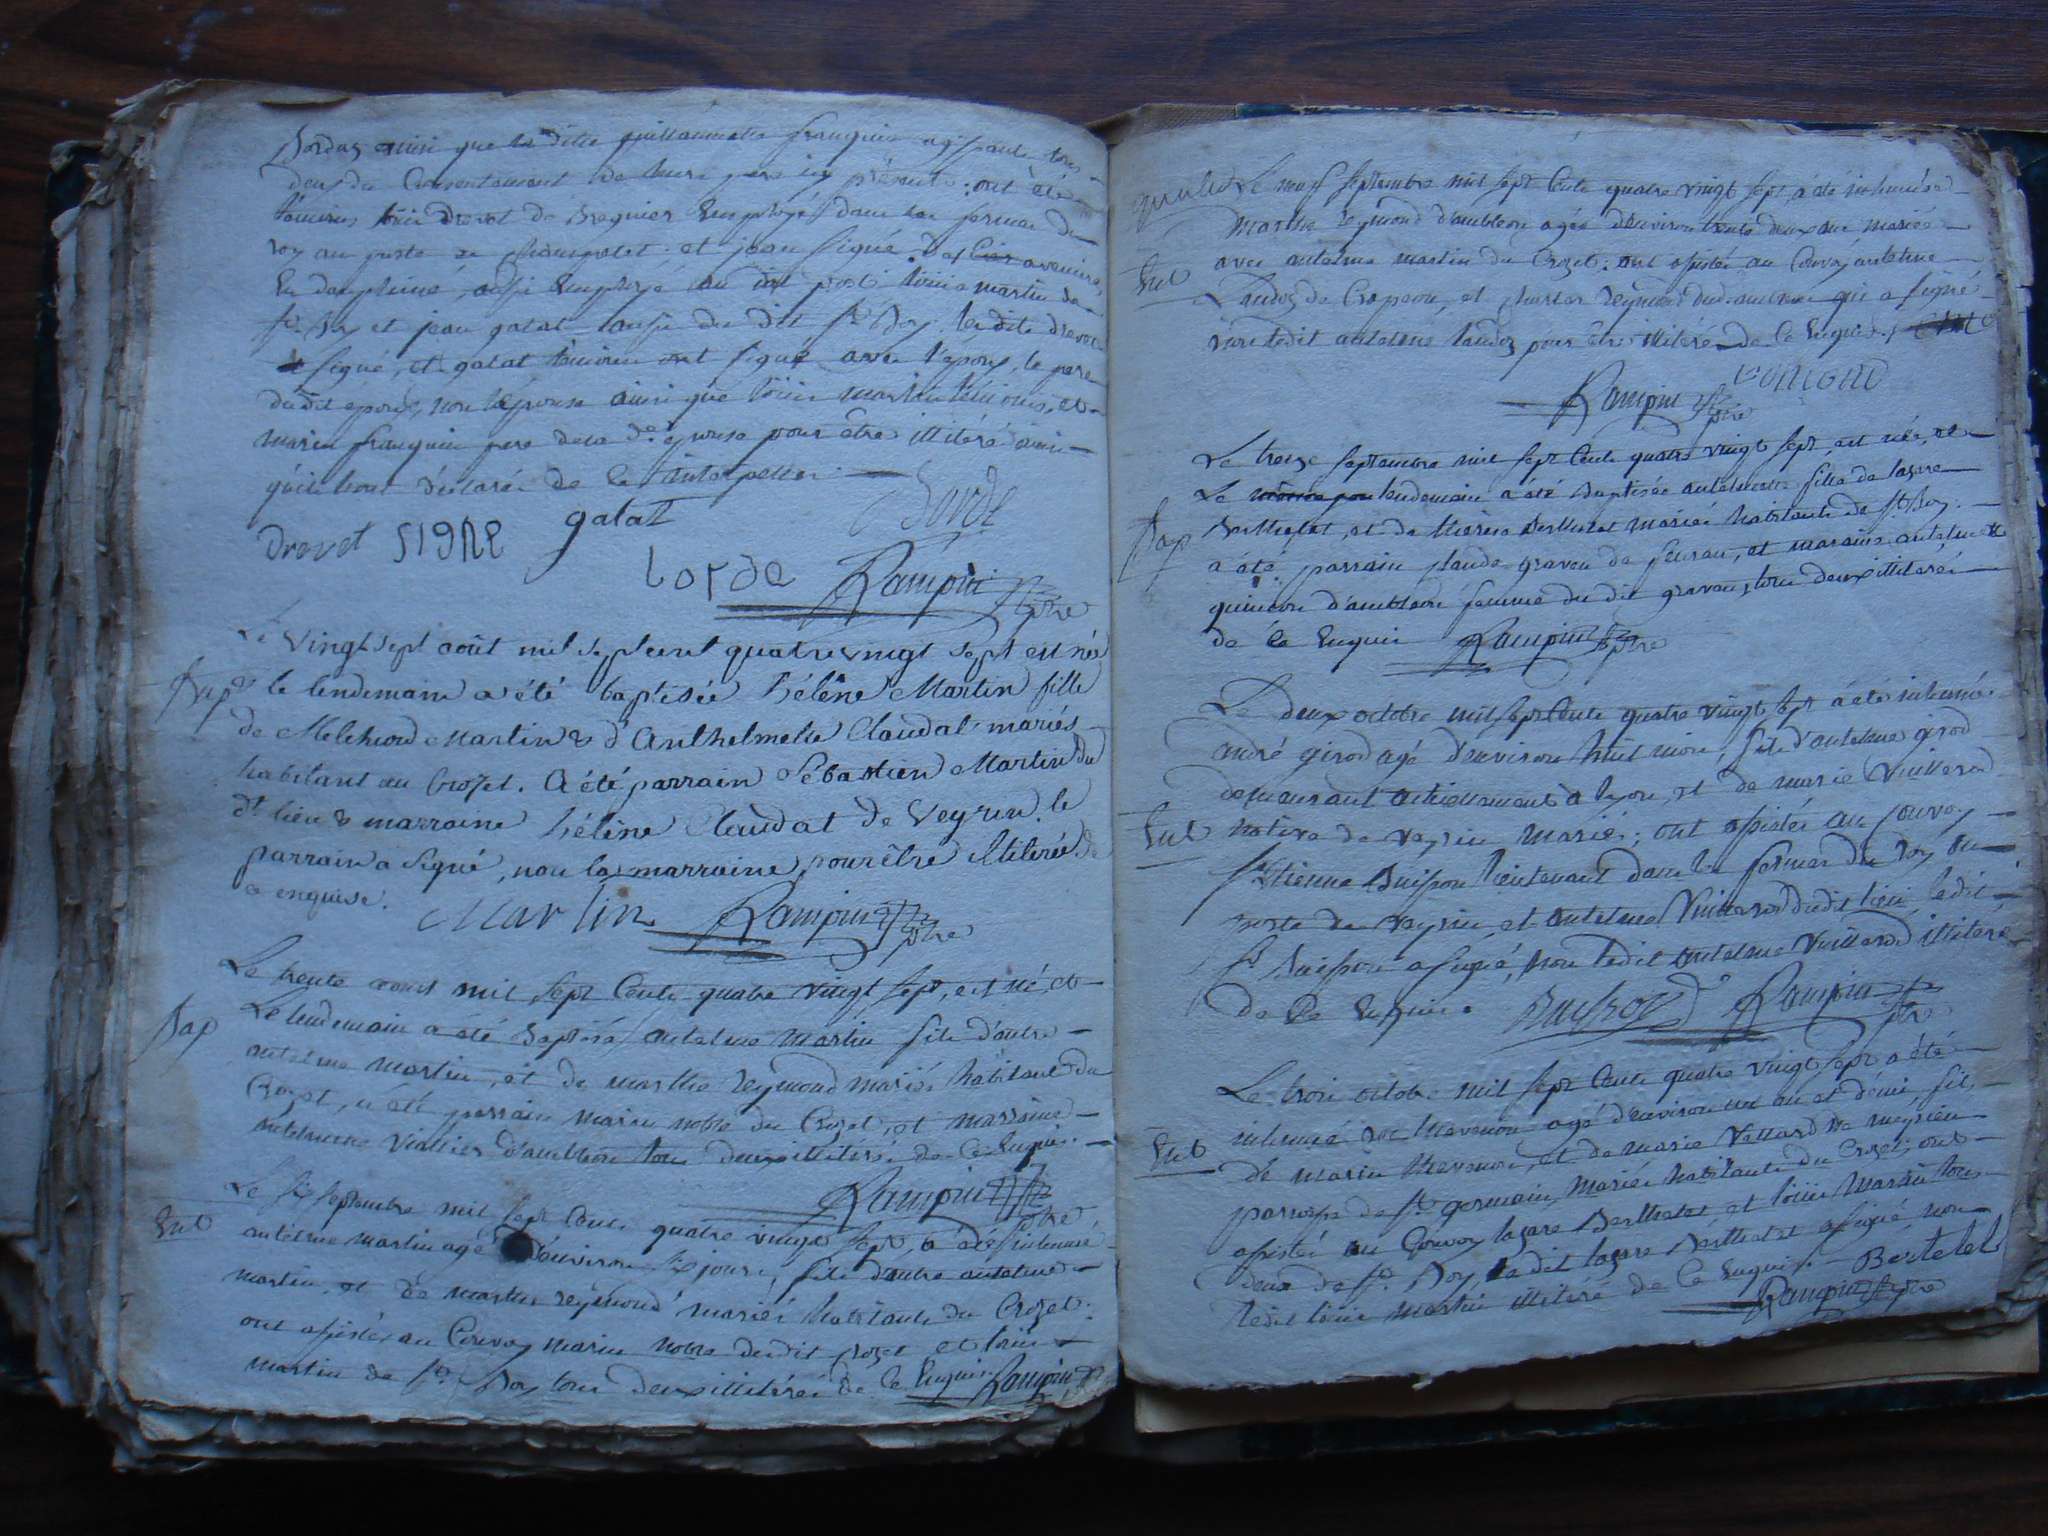 ainsi que la ditte guillaumette franquin agissants tous
deux du Consentement de leurs peres icy présents: ont été
témoins drevet de Bregnier Employé dans les fermes du
roy au poste de et jean signé
En dauphiné, aussi Employé au dit poste, louis martin de
St. Boy et jean galat aussi du dit St Boy. le dit drevet
signé, et galat témoins ont signé avec l'époux, le pere
dudit époux, non l'épouse ainsi que louis martin témoins, et
marin franquin pere de la de. épouse pour être illiteré ainsi
qu'ils l'ont déclaré de ce interpellés
drevet SIGNE galat
lorde Rampin ptre
Le vingt sept août mil sept cent quatre vingt sept est née
Bap & le lendemain a été baptisée hélène Martin fille
de Melchiord Martin & d'Anthelmette Claudat mariés
habitant au Crozet. A été parrain Sébastien Martin du
dt lieu & marraine hélène Claudat de Veyrin. le
parrain a signé, non la marraine pour être illiterée de
ce enquise. Martin Rampin ptre
Le trente aoust mil sept Cents quatre vingt sept, est né, et
Bap Le lendemain a été Baptisé antelme martin fils d'autre
antelme martin, et de marthe reymond mariés habitant du
Crozet, a été parrain marin noble du Crozet, et marraine
d'ambleon tous deux illiterés de ce Enquis.
Rampin ptre
Le six septembre mil sept Cents quatre vingt sept, a été inhumé
Ent antelme martin agé d'environ six jours, fils d'autre antelme
martin, et de marthe reymond mariés habitants du Crozet.
ont assistés au Convoy marin noble dudit Crozet et louis
martin de St. Boy tous deux illiterés de ce Enquis. Rampin
Le neuf septembre mil sept Cents quatre vingt sept a été inhumée
marthe reymond d'ambleon agée d'environ trente deux ans mariée
Ent avec antelme martin du Crozet: ont assistés au Convoy antelme
Landoz de Crapeou, et reymond dud. ambleon qui a signé
non ledit antelme landoz pour être illiteré de ce Enquis.
Rampin ptre
Le treize septembre mil sept Cents quatre vingt sept, est née, et
Le lendemain a été Baptisée antelmette fille de lazare
Bap Berthelet, et de thérèse mariés habitants de St Boy.
a été parrain Claude graven de et maraine antelmette
d'ambleon femme du dit graven, tous deux illiterés
de ce Enquis Rampin ptre
Le deux octobre mil sept Cents quatre vingt sept a été inhumé
andré girod agé d'environ huit mois, fils d'antelme girod
demeurant actuellement a lyon, et de marie Vuillerod
Ent native de veyrin mariés; ont assistés au Convoy
Sr. Etienne Buisson lieutenant dans les fermes du Roy au
poste de veyrin, et antelme Vuillerod dudit lieu, ledit
Sr. Buisson a signé, non ledit antelme Vuillerod illiteré
de ce Enquis. Buisson Rampin ptre
Le trois octobre mil sept Cents quatre vingt sept a été
inhumé roc thevenon agé d'environ un an et demi, fils
Ent de marin thevenon, et de marie Vettard de meyrieu
paroisse de St. germain, mariés habitants du Crozet; ont
assistés au Convoy lazare Berthelet et louis Martin tous
deux de St. Boy, ledit lazare Berthelet a signé, non
ledit louis martin illiteré de ce Enquis. Bertelet
Rampin ptre